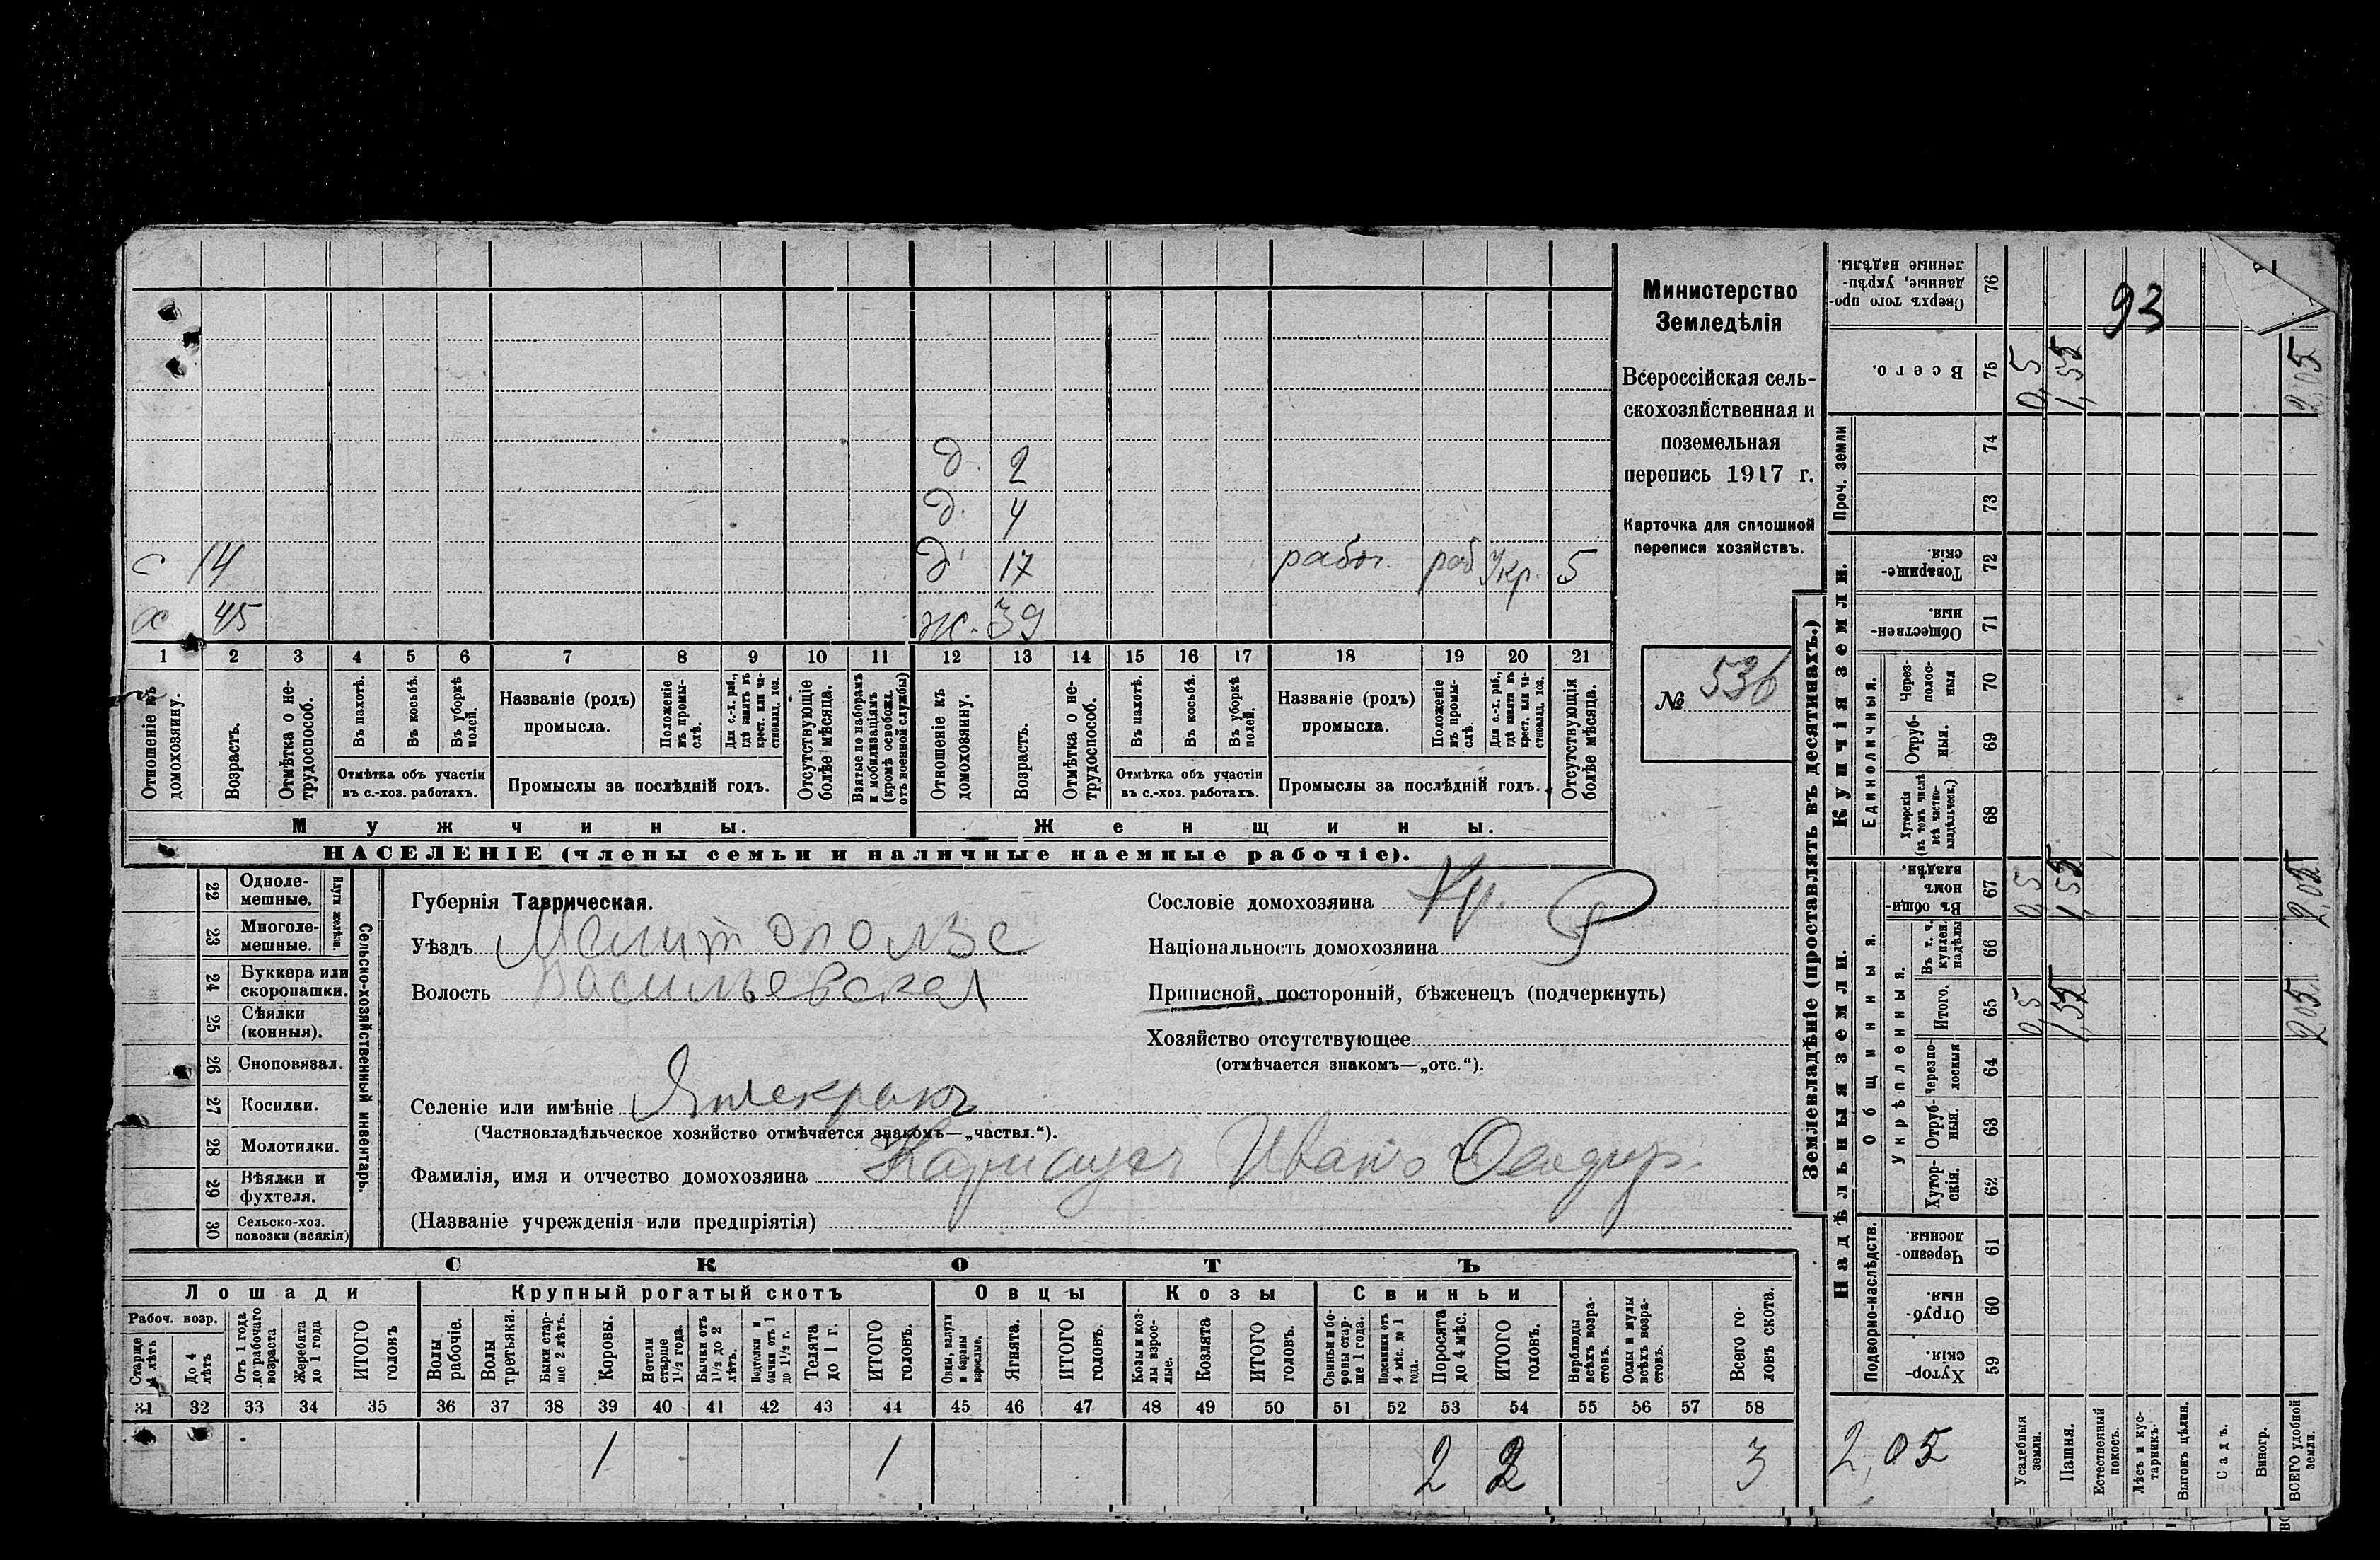 93
Министерство
Земледѣлія
Всероссійская сель-
скохозяйственная и
поземельная
перепись 1917 г.
Карточка для сплошной
переписи хозяйствъ.
№ 536
д. 2
д. 4
с 14
д. 17 работ. раб Укр. 5
х 45
ж. 39
1 2 3 4 5 6 7 8 9 10 11 12 13 14 15 16 17 18 19 20 21
Отношеніе къ домохозяину.
Возрастъ.
Отмѣтка о не-трудоспособ.
Въ пахотѣ.
Въ косьбѣ.
Въ уборкѣ полей.
Отмѣтка объ участіи
въ с.-хоз. работахъ.
Названіе (родъ)
промысла.
Положеніе въ промы-слѣ.
Для с.-х. раб., гдѣ занятъ въ крест. или ча-стновлад. хоз.
Промыслы за послѣдній годъ.
Отсутствующіе болѣе мѣсяца.
Взятые по наборамъ и мобилизаціямъ (кромѣ освобожд. отъ военной службы)
Отношеніе къ домохозяину.
Возрастъ.
Отмѣтка о не-трудоспособ.
Въ пахотѣ.
Въ косьбѣ.
Въ уборкѣ полей.
Отмѣтка объ участіи
въ с.-хоз. работахъ.
Названіе (родъ)
промысла.
Положеніе въ промы-слѣ.
Для с.-х. раб., гдѣ занятъ въ крест. или ча-стновлад. хоз.
Промыслы за послѣдній годъ.
Отсутствующія болѣе мѣсяца.
Мужчины.
Женщины.
НАСЕЛЕНІЕ (члены семьи и наличные наемные рабочіе).
Сельско-хозяйственный инвентарь.
Плуги желѣзн.
22 Одноле-мешные.
23 Многоле-мешные.
24 Буккера или скоропашки.
25 Сѣялки (конныя).
26 Сноповязал.
27 Косилки.
28 Молотилки.
29 Вѣялки и фухтеля.
30 Сельско-хоз. повозки (всякія)
Губернія Таврическая.
Уѣздъ Мелитопольс
Волость Васильевская
Селеніе или имѣніе Янчекракъ
(Частновладѣльческое хозяйство отмѣчается знакомъ—„частвл.“).
Фамилія, имя и отчество домохозяина Иванъ
(Названіе учрежденія или предпріятія)
Сословіе домохозяина Кр.
Національность домохозяина Р
Приписной, посторонній, бѣженецъ (подчеркнуть)
Хозяйство отсутствующее
(отмѣчается знакомъ—„отс.“).
СКОТЪ
Лошади
Крупный рогатый скотъ
Овцы
Козы
Свиньи
Рабоч. возр.
Старше 4 лѣтъ
До 4 лѣтъ
Отъ 1 года до рабочаго возраста
Жеребята до 1 года
ИТОГО головъ
Волы рабочіе.
Волы третьяки.
Быки стар-ше 2 лѣтъ.
Коровы.
Нетели старше 1½ года.
Бычки отъ 1½ до 2 лѣтъ.
Подтелки и бычки отъ 1 до 1½ г.
Телята до 1 г.
ИТОГО головъ.
Овцы, валухи и бараны взрослые.
Ягнята.
ИТОГО головъ.
Козы и коз-лы взрос-лые.
Козлята
ИТОГО головъ.
Свиньи и бо-ровы стар-ше 1 года.
Подсвинки отъ 4 мѣс. до 1 года.
Поросята до 4 мѣс.
ИТОГО головъ.
Верблюды всѣхъ возра-стовъ.
Ослы и мулы всѣхъ возра-стовъ.
Всего го-ловъ скота.
31 32 33 34 35 36 37 38 39 40 41 42 43 44 45 46 47 48 49 50 51 52 53 54 55 56 57 58
1 1 2 2 3
Землевладѣніе (проставлять въ десятинахъ.)
Купчія земли.
Надѣльныя земли.
Сверхъ того про-данные, укрѣп-ленные надѣлы. 76
Всего. 75 0,5 1,55 2,05
Проч. земли
74
73
Товарище-скія. 72
Обществен-ныя. 71
Единоличныя.
Через-полос-ныя 70
Отруб-ныя. 69
Хуторскія (въ томъ числѣ всѣ частно-владѣльческ.) 68
Общинныя.
Въ общи-номъ владѣн. 67 0,5 1,55 2,05
Укрѣпленныя.
Въ т. ч. куплен. надѣлы 66
Итого. 65 0,5 1,55 2,05
Черезпо-лосныя 64
Отруб-ныя. 63
Хутор-скія. 62
Подворно-наслѣдств.
Черезпо-лосныя. 61
Отруб-ныя. 60
Хутор-скія. 59
2,05
Усадебныя земли.
Пашня.
Естественный покосъ.
Лѣсъ и кус-тарникъ.
Выгонъ цѣлин.
Садъ.
Виногр.
ВСЕГО удобной земли.